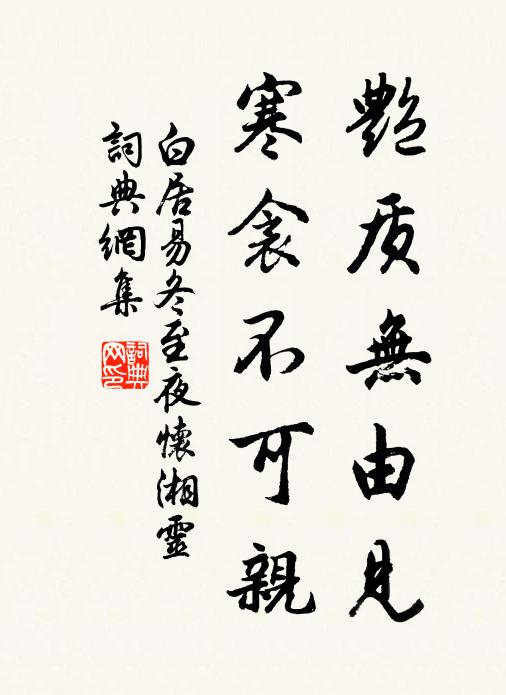 艷质無由見
寒衾不可親
白居易冬至夜懷湘靈
詞典網集
詞典网印